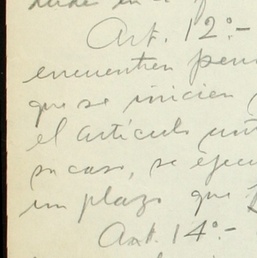 Art. 12º.-
encuentren pen
que se inicien
el artículo
su caso, se ejecu
un plazo que
Art. 14º.-